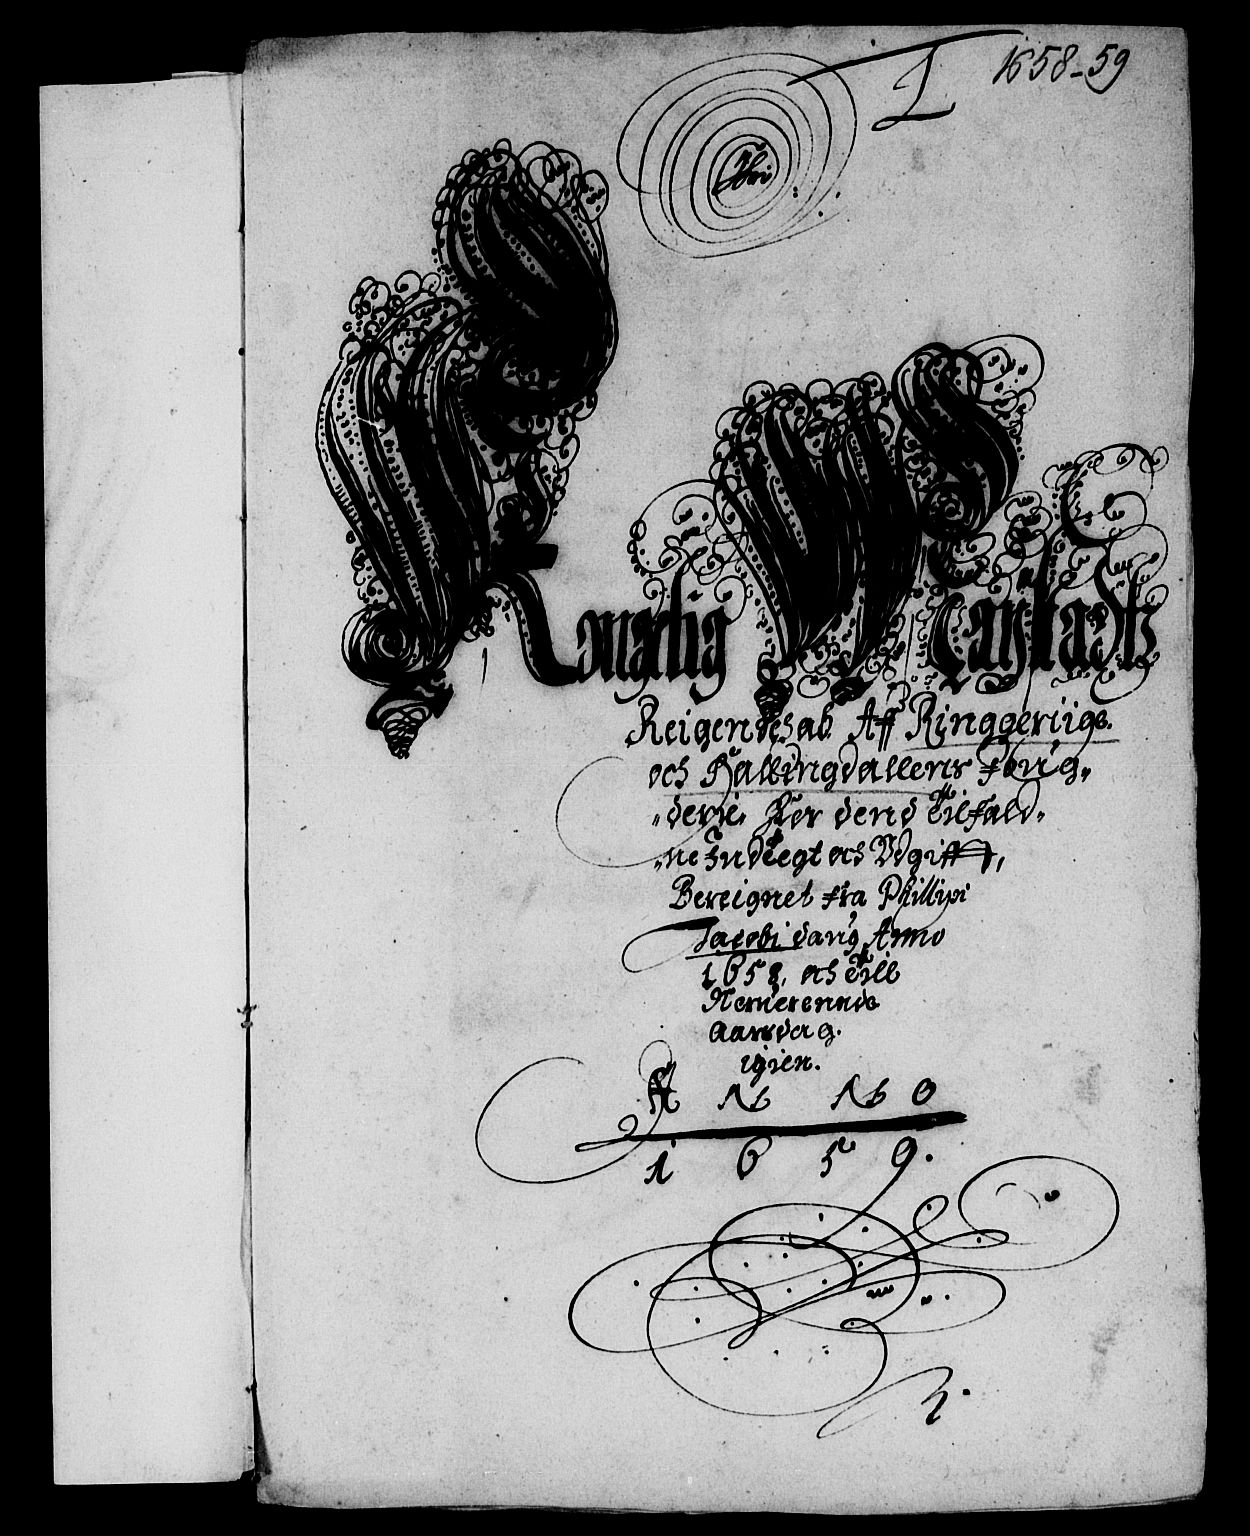 1658-59
Kongelig Mayttadtz
Reigenschab Aff Ringgeriigs.
och Hallingdallens Foug,,
,,derie, Her dend Tilfald,,
,,ne Indtegt och Udgifft,
Bereignet fra Phillipi
Jacobi daug Anno
1658, och Till
Neruerennde
Aarsdag.
igien.
A N N O
1 6 5 9.